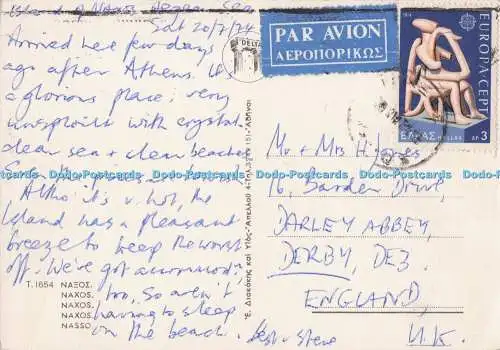 Island of Naxos, Aegean Sea,
Sat 20/7/74
Arrived here few days
ago after Athens. It's
a glorious place, very
unspoilt with crystal
clear sea & clean beaches
Altho' it's v. hot, the
Island has a pleasant
breeze to keep the worst
off. We've got accommod
too, so aren't
having to sleep
on the beach. Best - Steve
T. 1654 ΝΑΞΟΣ.
NAXOS.
NAXOS.
NAXOS.
NASSO.
DELTA
PAR AVION
ΑΕΡΟΠΟΡΙΚΩΣ
EUROPA CEPT
ΕΛΛΑΣ HELLAS ΔΡ 3
Mr & Mrs H.
16, Barden Drive,
DARLEY ABBEY,
DERBY, DE3.
ENGLAND,
U.K.
Dodo-Postcards Dodo-Postcards Dodo-Postcards Dodo-Postcards Dodo-Postcards